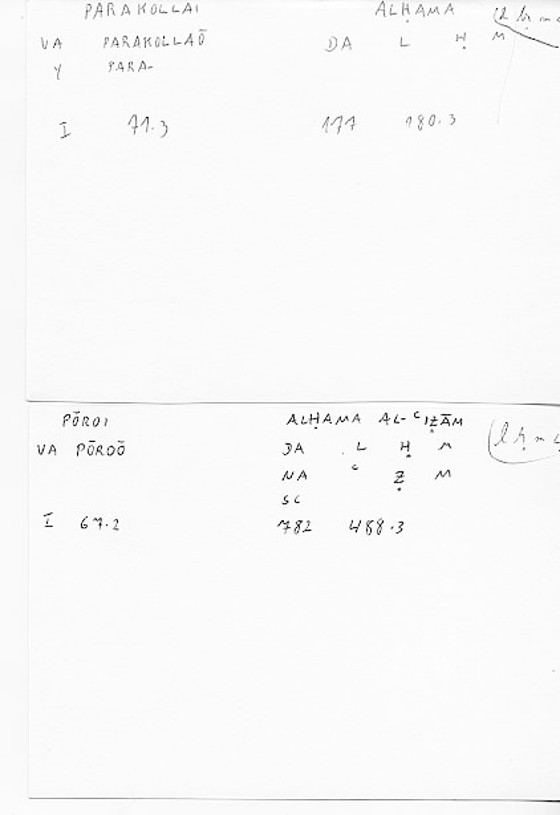 PARAKOLLAI ALḤAMA (l ḥ m
VA PARAKOLLAŌ DA L Ḥ M
Y PARA-
I 71.3 177 180.3
PŌROI ALḤAMA AL-ᶜIẒĀM (l ḥ m
VA PŌROŌ DA L Ḥ M
NA ᶜ Ẓ M
SC
I 67.2 782 488.3